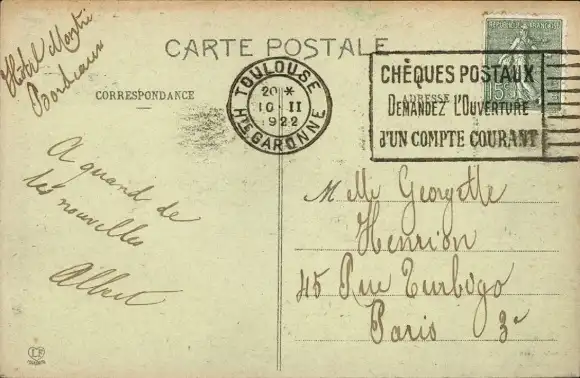 Hôtel
Bordeaux
CARTE POSTALE
CORRESPONDANCE
ADRESSE
TOULOUSE
20 *
10 - II
1922
Hte GARONNE
CHÈQUES POSTAUX
DEMANDEZ L'OUVERTURE
D'UN COMPTE COURANT
A quand de
tes nouvelles
Albert
Melle Georgette
Henrion
45 Rue Turbigo
Paris 3e